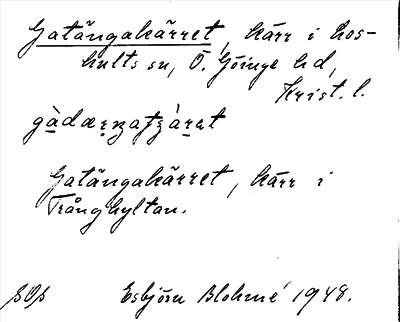 Gatängakärret, kärr i Los-
hults sn, Ö. Göinge hd,
Krist. l.
Gatängakärret, kärr i
Trånghyltan.
Esbjörn Blohmé 1948.